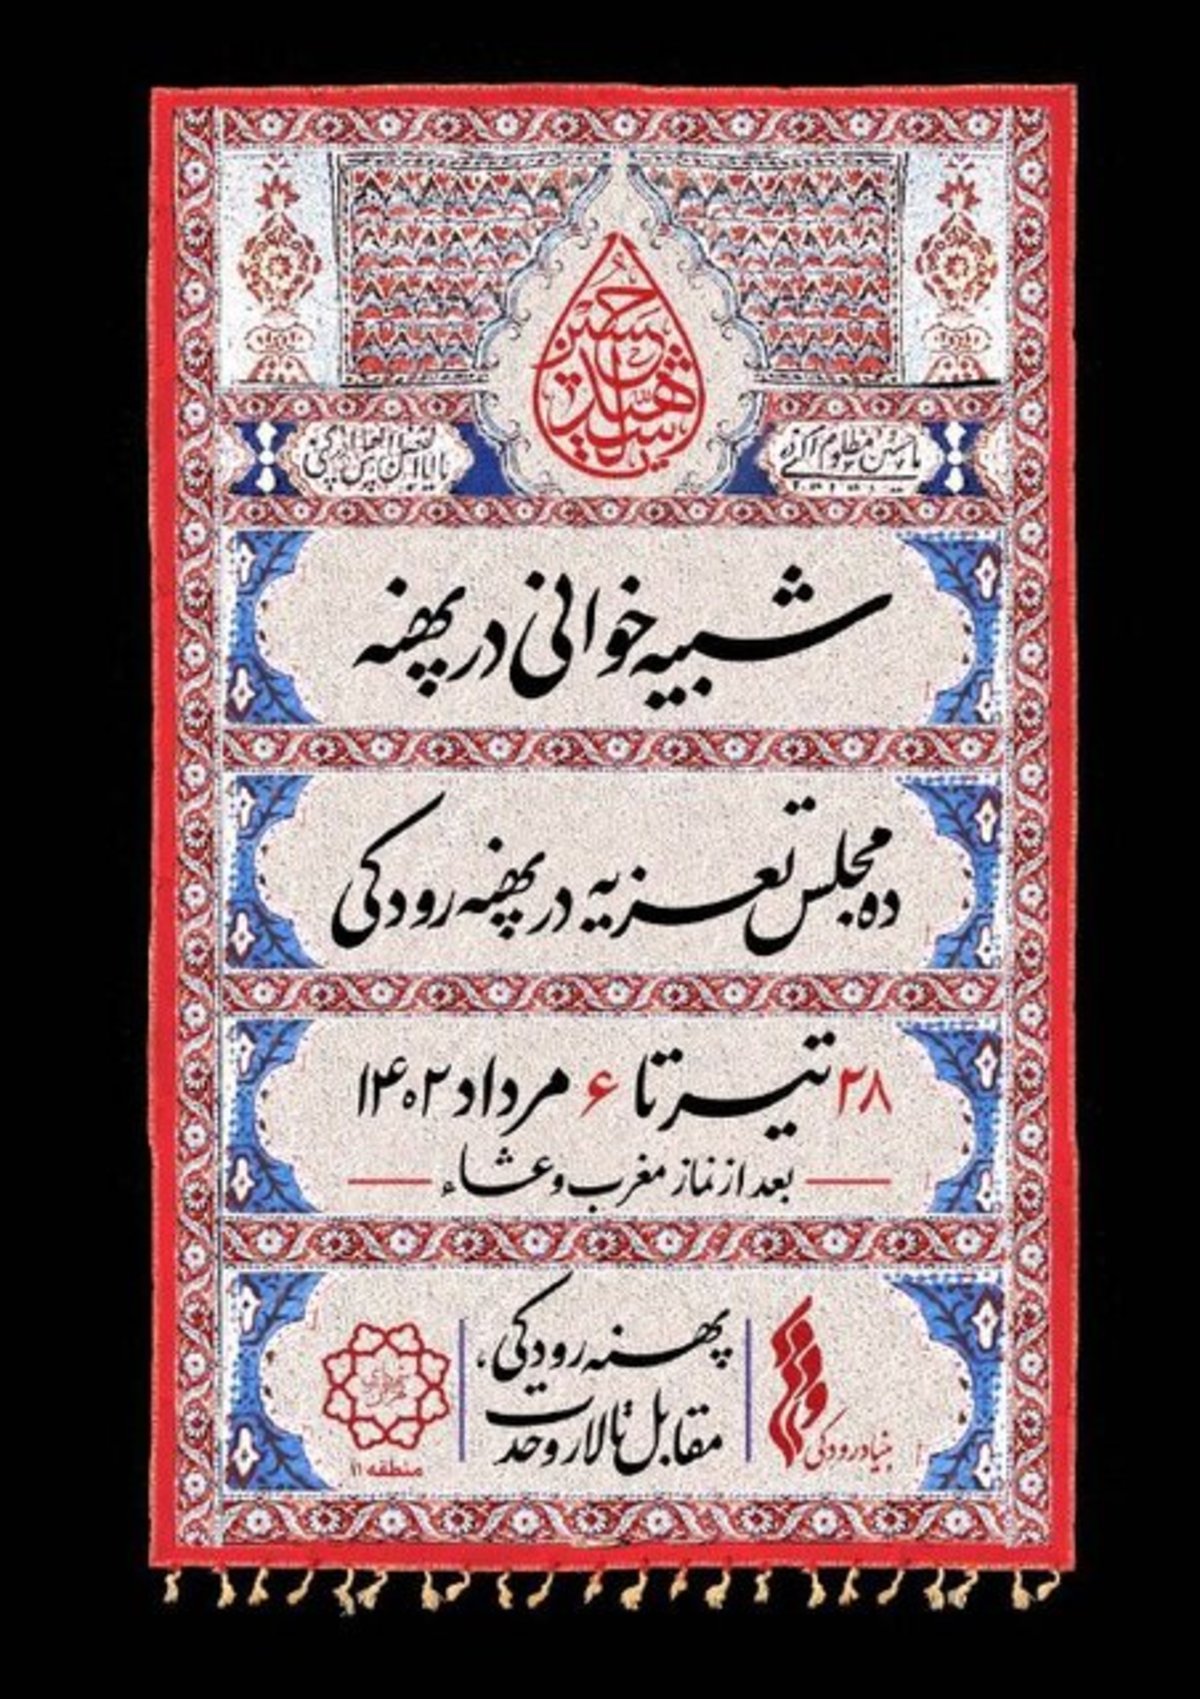 حسین
سیدالشهدا
شبیه‌خوانی در پهنه
ده مجلس تعزیه در پهنه رودکی
۲۸ تیر تا ۶ مرداد ۱۴۰۳
بعد از نماز مغرب و عشاء
پهنه رودکی،
مقابل تالار وحدت
بنیاد رودکی
منطقه ۱۱